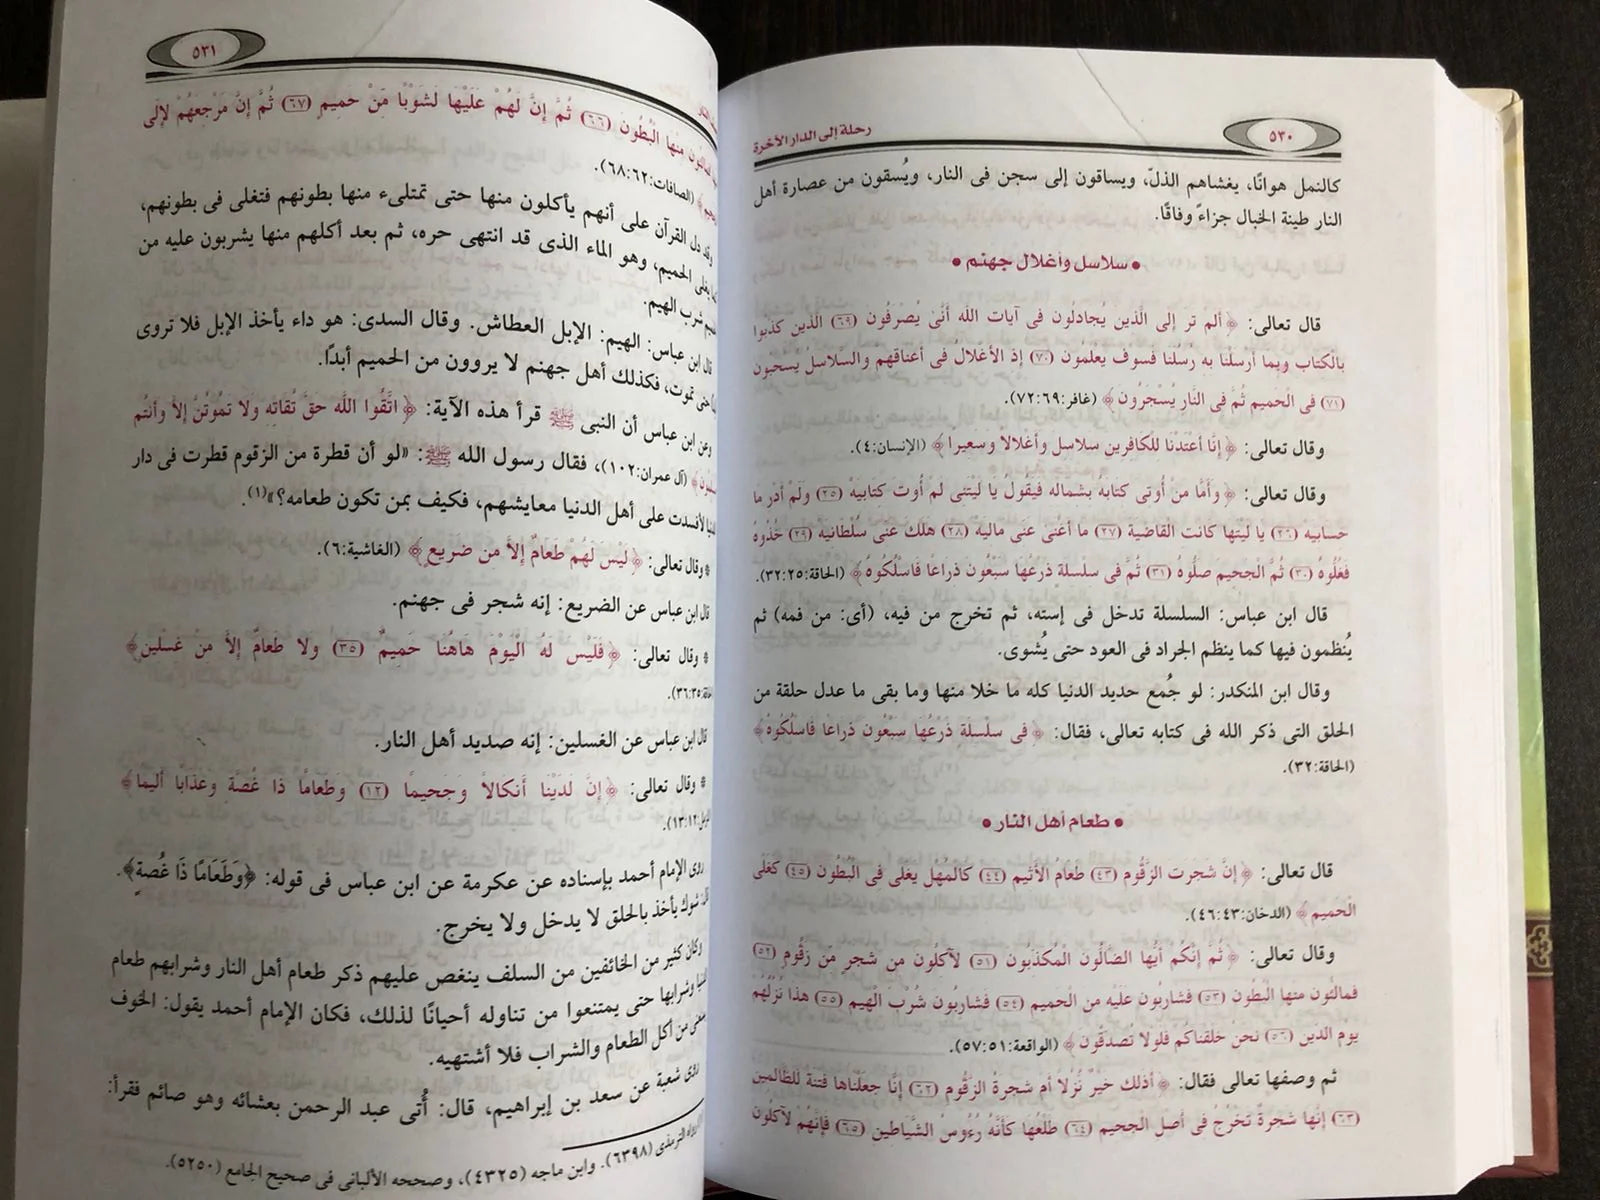 ٥٣٠
رحلة إلى الدار الآخرة
كالنمل هوانًا، يغشاهم الذلّ، ويساقون إلى سجن فى النار، ويُسقون من عصارة أهل
النار طينة الخبال جزاءً وفاقًا.
• سلاسل وأغلال جهنم •
قال تعالى: ﴿ ألم تر إلى الَّذين يُجادلُون فى آيات اللَّه أنَّىٰ يُصْرَفُون (٦٩) الَّذين كذَّبوا
بالْكتاب وبما أرسلْنا به رُسُلَنا فسوف يعْلمُون (٧٠) إذ الأغْلالُ فى أعناقهمْ والسَّلاسلُ يُسْحبُون
(٧١) فى الْحميم ثُمَّ فى النَّار يُسْجَرُون ﴾ (غافر:٧٢:٦٩).
وقال تعالى: ﴿ إنَّا أعْتَدْنَا للْكافرين سلاسل وأغْلالا وسعيرا ﴾ (الإنسان:٤).
وقال تعالى: ﴿ وأمَّا منْ أُوتى كتابهُ بشماله فيقُولُ يا ليْتنى لمْ أُوت كتابيهْ (٢٥) ولمْ أدْر ما
حسابيه (٢٦) يا ليْتها كانت القاضية (٢٧) ما أغنىٰ عنى ماليه (٢٨) هلك عنى سُلْطانيه (٢٩) خُذُوهُ
فغُلُّوهُ (٣٠) ثُمَّ الجحيم صلُّوهُ (٣١) ثُمَّ فى سلْسلة ذرْعُها سبْعُون ذراعًا فاسْلُكُوهُ ﴾ (الحاقة:٣٢:٢٥).
قال ابن عباس: السلسلة تدخل فى إسته، ثم تخرج من فيه، (أى: من فمه) ثم
يُنظمون فيها كما ينظم الجراد فى العود حتى يُشوى.
وقال ابن المنكدر: لو جُمع حديد الدنيا كله ما خلا منها وما بقى ما عدل حلقة من
الحلق التى ذكر الله فى كتابه تعالى، فقال: ﴿ فى سلْسلَة ذرْعُها سبْعُون ذراعًا فاسْلُكُوهُ ﴾
(الحاقة:٣٢).
• طعام أهل النار •
قال تعالى: ﴿ إنَّ شجرت الزَّقُّوم (٤٣) طعامُ الأثيم (٤٤) كالمُهْل يغلى فى البُطُون (٤٥) كغلْى
الْحَميم ﴾ (الدخان:٤٦:٤٣).
وقال تعالى: ﴿ ثُمَّ إنَّكُمْ أيُّها الضَّالُّون الْمُكذّبُون (٥١) لآكلُون من شجرٍ مّن زقُّومٍ (٥٢)
فمالئُون منها الْبُطُون (٥٣) فشاربُون عليْه من الْحميم (٥٤) فشاربُون شُرْب الْهيم (٥٥) هذا نُزُلُهمْ
يوْم الدين (٥٦) نحنُ خلقناكم فلولا تُصدّقُون ﴾ (الواقعة:٥٧:٥١).
ثم وصفها تعالى فقال: ﴿ أذلك خيْرٌ نُّزُلًا أم شجرةُ الزقُّوم (٦٢) إنَّا جعلْناها فتنةً للظَّالمين
(٦٣) إنها شجرةٌ تخْرُجُ فى أصل الجحيم (٦٤) طلْعُها كأنَّهُ رُءُوسُ الشَّياطين (٦٥) فإنَّهُمْ لآكلُون
٥٣١
منها الْبُطُون (٦٦) ثُمَّ إنَّ لَهُمْ عَلَيْهَا لَشَوْبًا مِّنْ حَمِيمٍ (٦٧) ثُمَّ إنَّ مَرْجِعَهُمْ لإِلَى
﴾ (الصافات:٦٨:٦٢).
وقد دل القرآن على أنهم يأكلون منها حتى تمتلىء منها بطونهم فتغلى فى بطونهم،
يغلى الحميم، وهو الماء الذى قد انتهى حره، ثم بعد أكلهم منها يشربون عليه من
شرب الهيم.
قال ابن عباس: الهيم: الإبل العطاش. وقال السدى: هو داء يأخذ الإبل فلا تروى
حتى تموت، فكذلك أهل جهنم لا يروون من الحميم أبدًا.
وعن ابن عباس أن النبى ﷺ قرأ هذه الآية: ﴿ اتَّقُوا اللَّه حقَّ تُقاته ولا تمُوتُنَّ إلاَّ وأنتُم
﴾ (آل عمران:١٠٢)، فقال رسول الله ﷺ: «لو أن قطرة من الزقوم قطرت فى دار
لأفسدت على أهل الدنيا معايشهم، فكيف بمن تكون طعامه؟»(١).
* وقال تعالى: ﴿ لَيْس لَهُمْ طَعَامٌ إلاَّ من ضريعٍ ﴾ (الغاشية:٦).
قال ابن عباس عن الضريع: إنه شجر فى جهنم.
* وقال تعالى: ﴿ فَلَيْسَ لَهُ الْيَوْمَ هَاهُنَا حَمِيمٌ (٣٥) ولا طَعَامٌ إلاَّ منْ غسْلين ﴾
:٣٦:٣٥).
قال ابن عباس عن الغسلين: إنه صديد أهل النار.
* وقال تعالى: ﴿ إنَّ لَدَيْنَا أَنكَالاً وَجَحِيمًا (١٢) وَطَعَامًا ذَا غُصَّة وعَذَابًا أليمًا ﴾
:١٣:١٢).
روى الإمام أحمد بإسناده عن عكرمة عن ابن عباس فى قوله: ﴿وَطَعَامًا ذَا غُصةٍ﴾.
شوك يأخذ بالحلق لا يدخل ولا يخرج.
وكان كثير من الخائفين من السلف ينغص عليهم ذكر طعام أهل النار وشرابهم طعام
وشرابها حتى يمتنعوا من تناوله أحيانًا لذلك، فكان الإمام أحمد يقول: الخوف
من أكل الطعام والشراب فلا أشتهيه.
روى شعبة عن سعد بن إبراهيم، قال: أُتى عبد الرحمن بعشائه وهو صائم فقرأ:
رواه الترمذى (٦٣٩٨). وابن ماجه (٤٣٢٥)، وصححه الألبانى فى صحيح الجامع (٥٢٥٠).